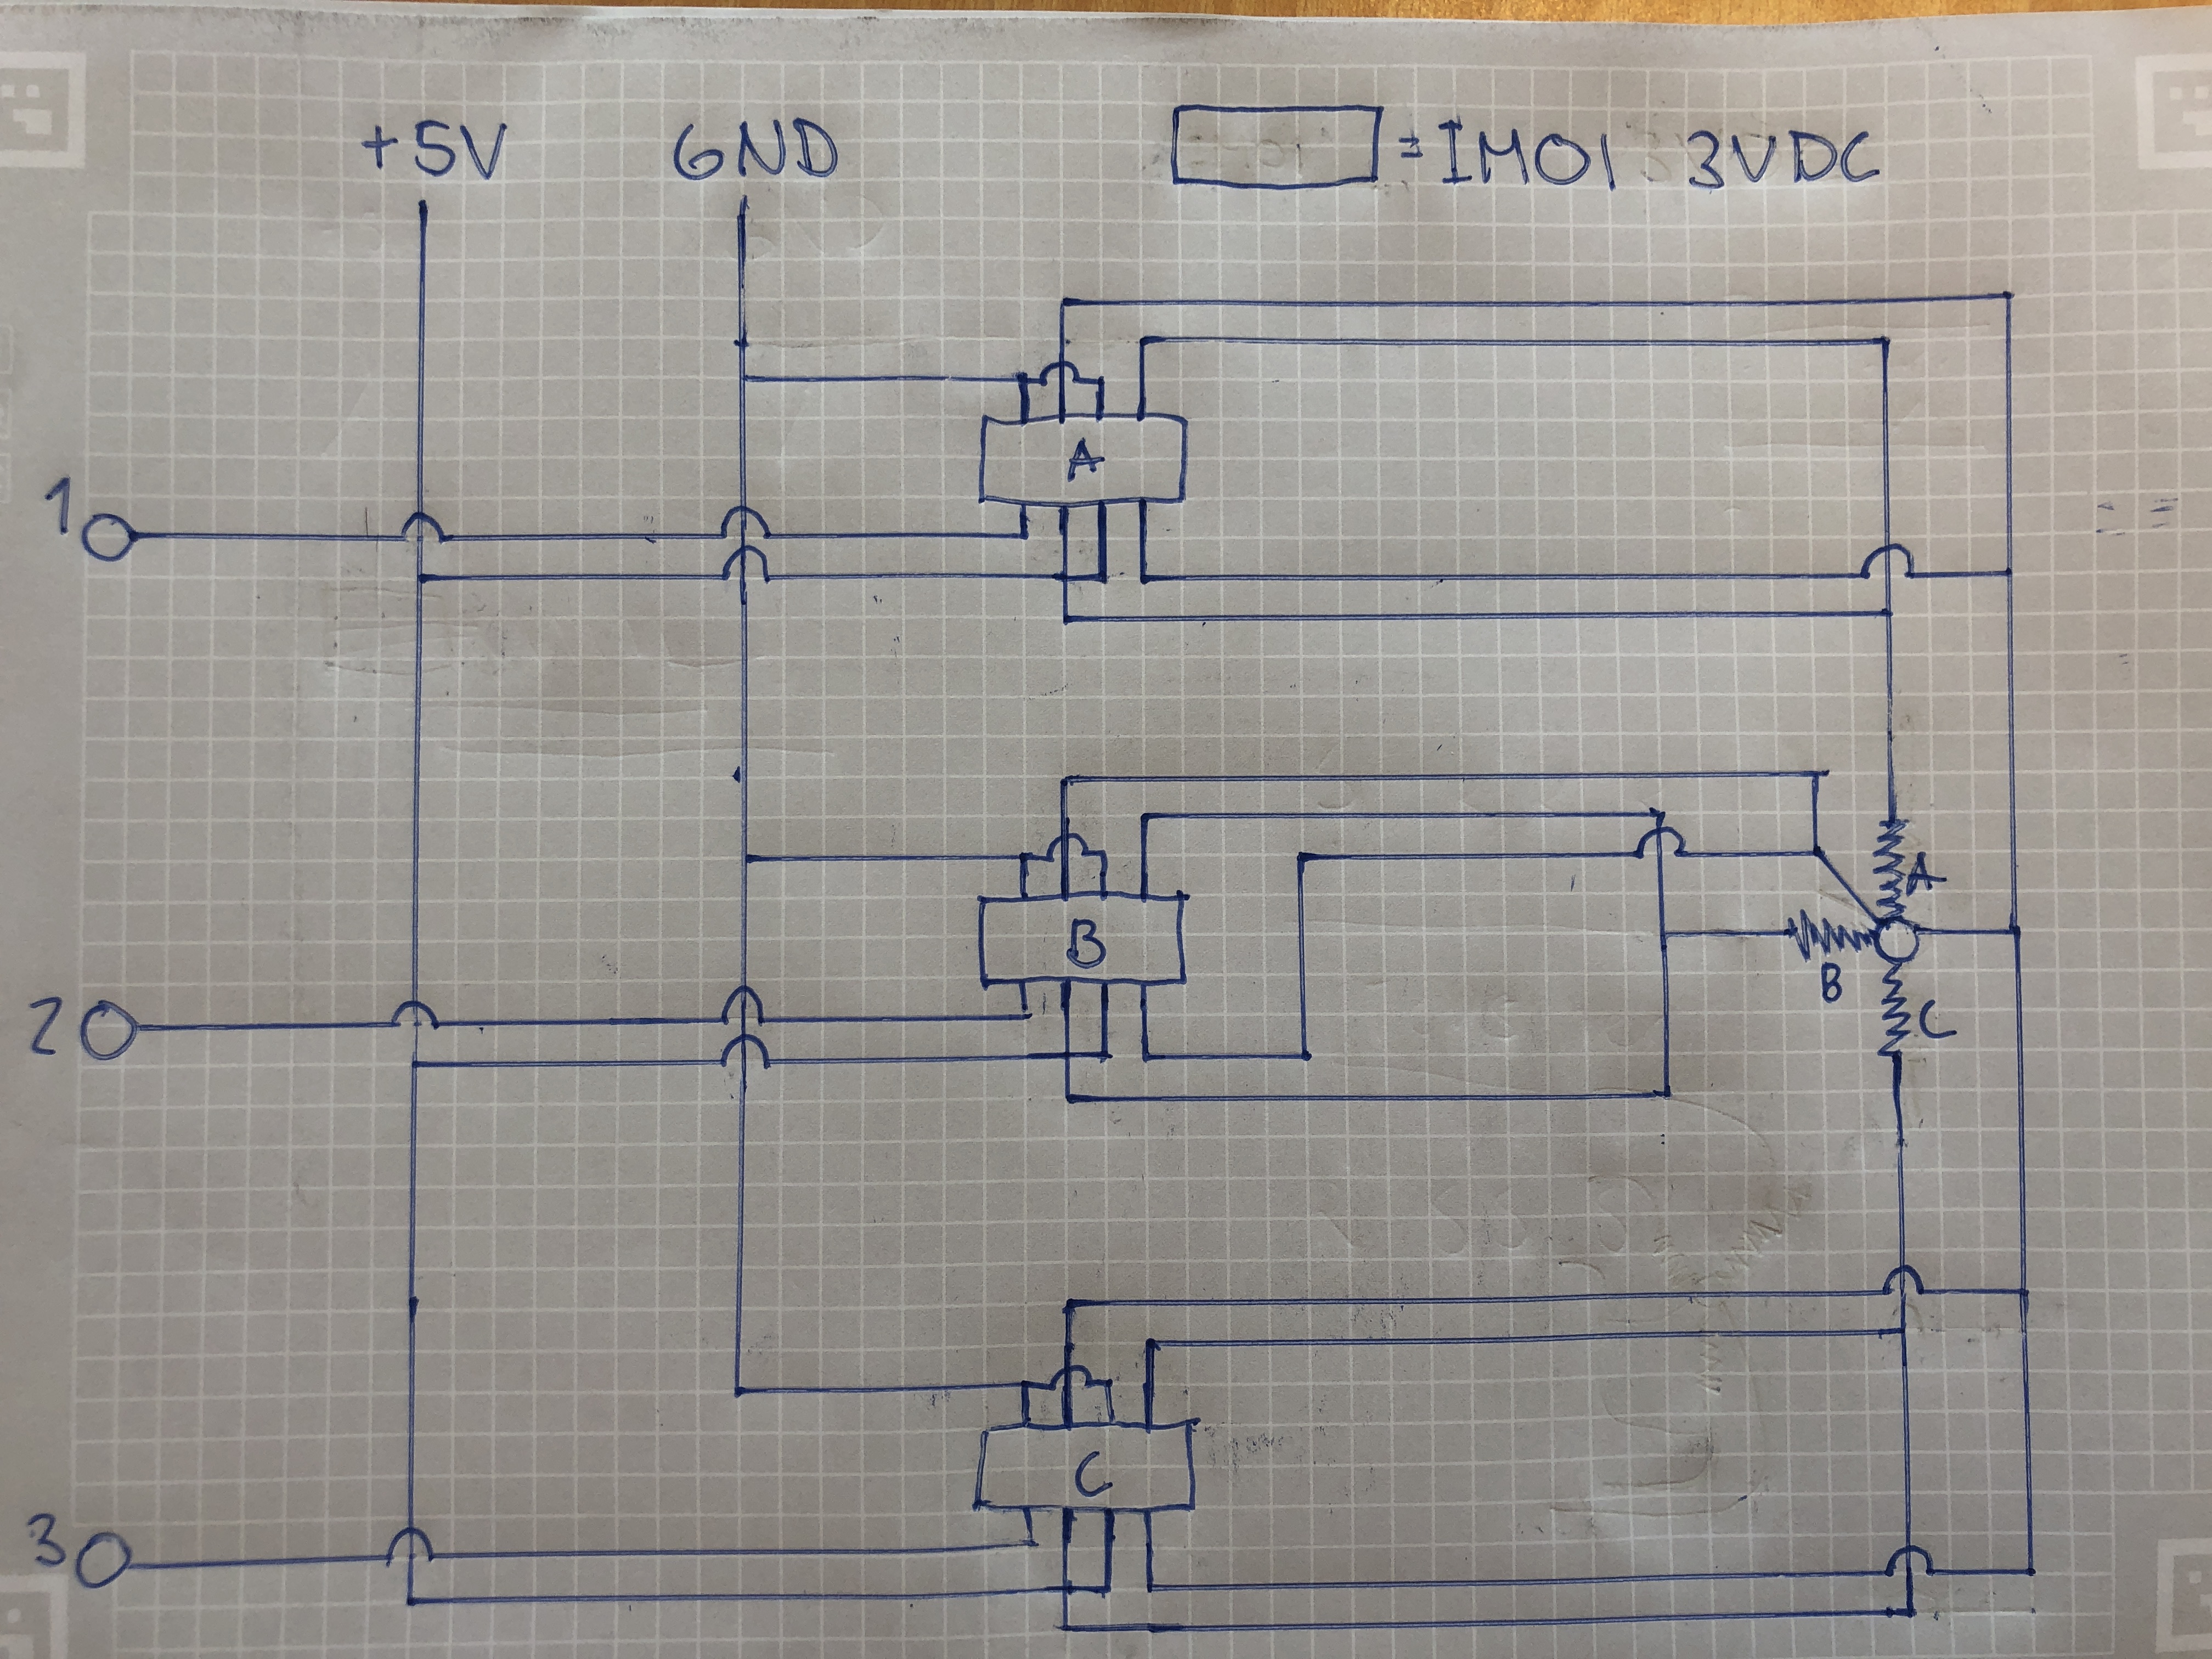 +5V GND = IM01 3VDC
A
1
A
B
B
2
C
C
3